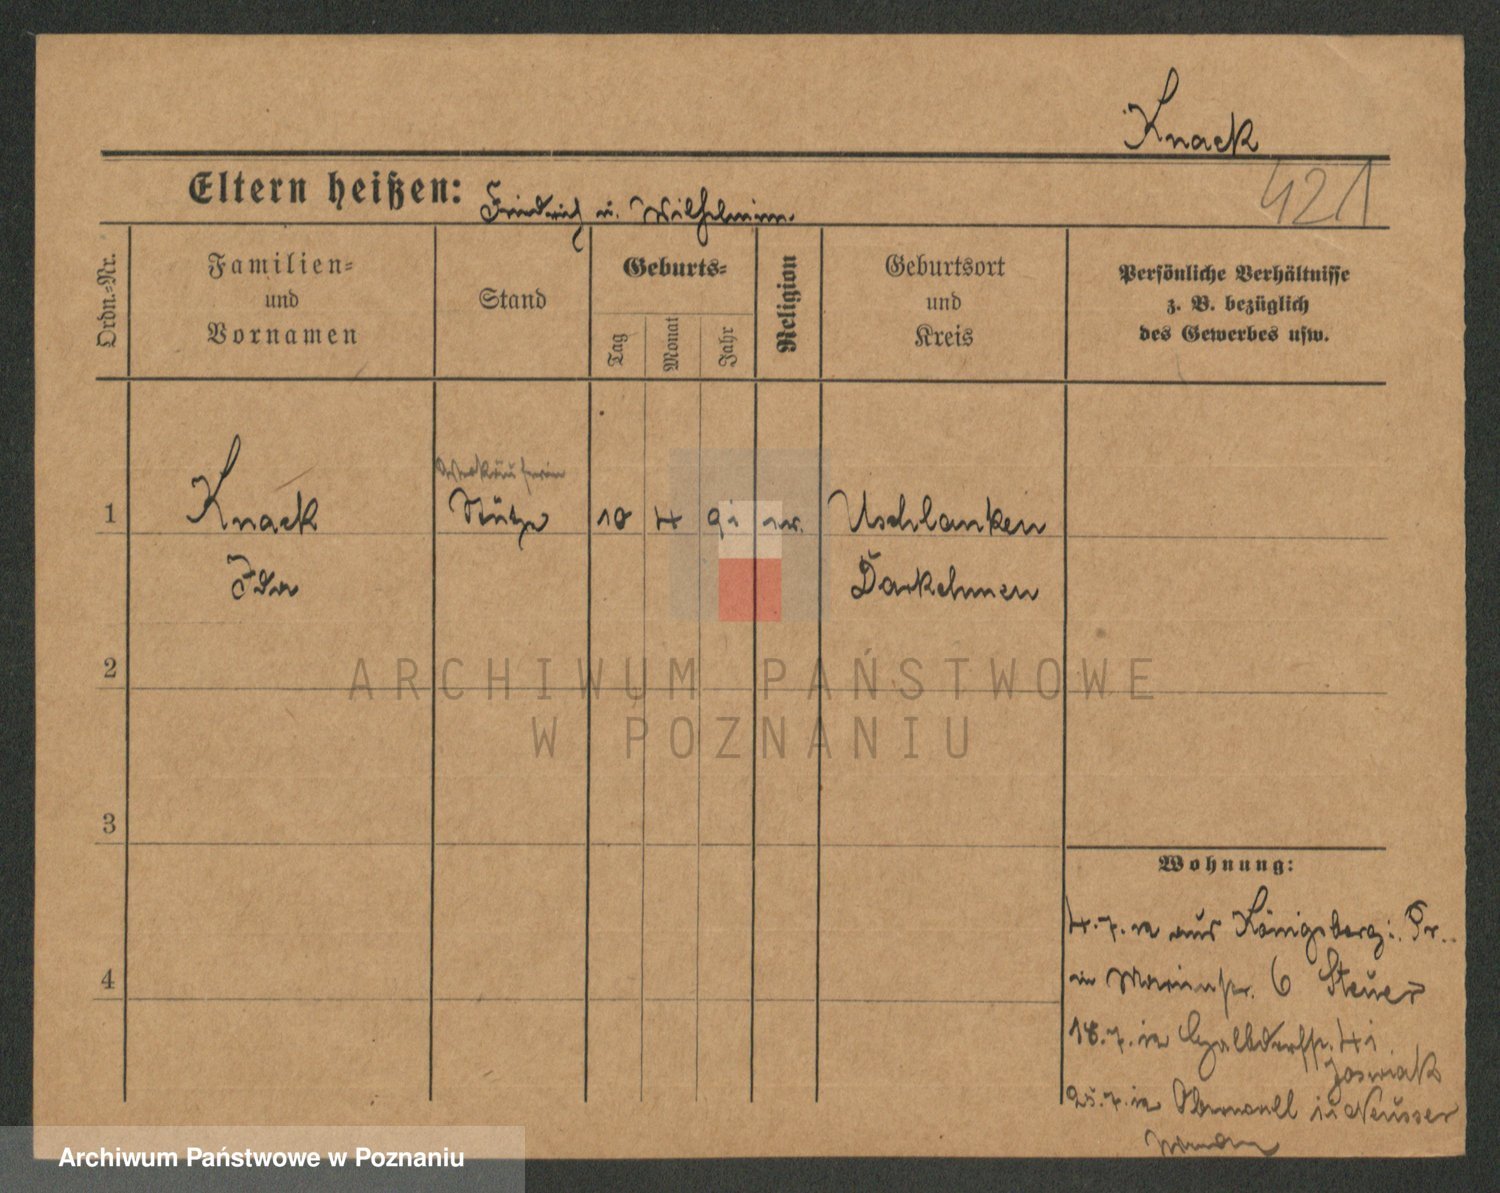 Knack
421
Eltern heißen: Friedrich u. Wilhelmine.
Ordn.=Nr.
Familien=
und
Vornamen
Stand
Geburts=
Tag
Monat
Jahr
Religion
Geburtsort
und
Kreis
Persönliche Verhältnisse
z. B. bezüglich
des Gewerbes usw.
Verkäuferin
1 Knack Stütze 10 4 91 Uschlanken
Ida Darkehmen
2
ARCHIWUM PAŃSTWOWE
W POZNANIU
3
4
Wohnung:
4.7. aus Königsberg i. Pr.
in Marienstr. 6 Steuer
18.7. 41
Joswiak
25.7.
Archiwum Państwowe w Poznaniu